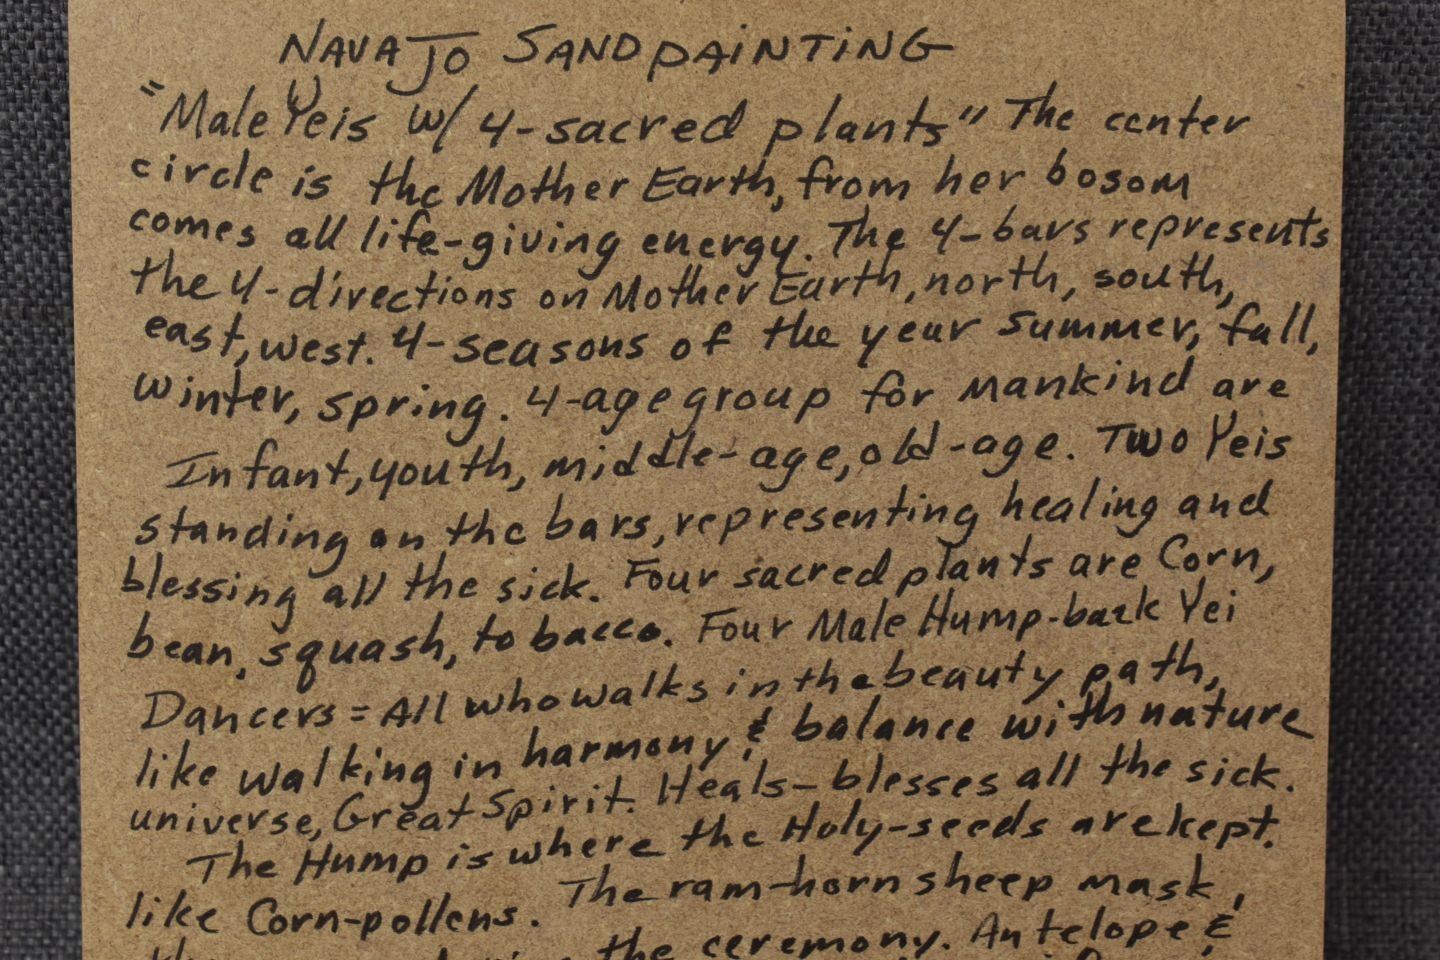 NAVAJO SANDPAINTING
"Male Yeis w/ 4-sacred plants" The center
circle is the Mother Earth, from her bosom
comes all life-giving energy. The 4-bars represents
the 4-directions on Mother Earth, north, south,
east, west. 4-seasons of the year summer, fall,
winter, spring. 4-age group for mankind are
Infant, youth, middle-age, old-age. Two Yeis
standing on the bars, representing healing and
blessing all the sick. Four sacred plants are Corn,
bean, squash, tobacco. Four Male Hump-back Yei
Dancers = All who walks in the beauty path,
like walking in harmony & balance with nature
universe, Great Spirit. Heals-blesses all the sick.
The Hump is where the Holy-seeds are kept.
like Corn-pollens. The ram-horn sheep mask,
the ceremony. Antelope &